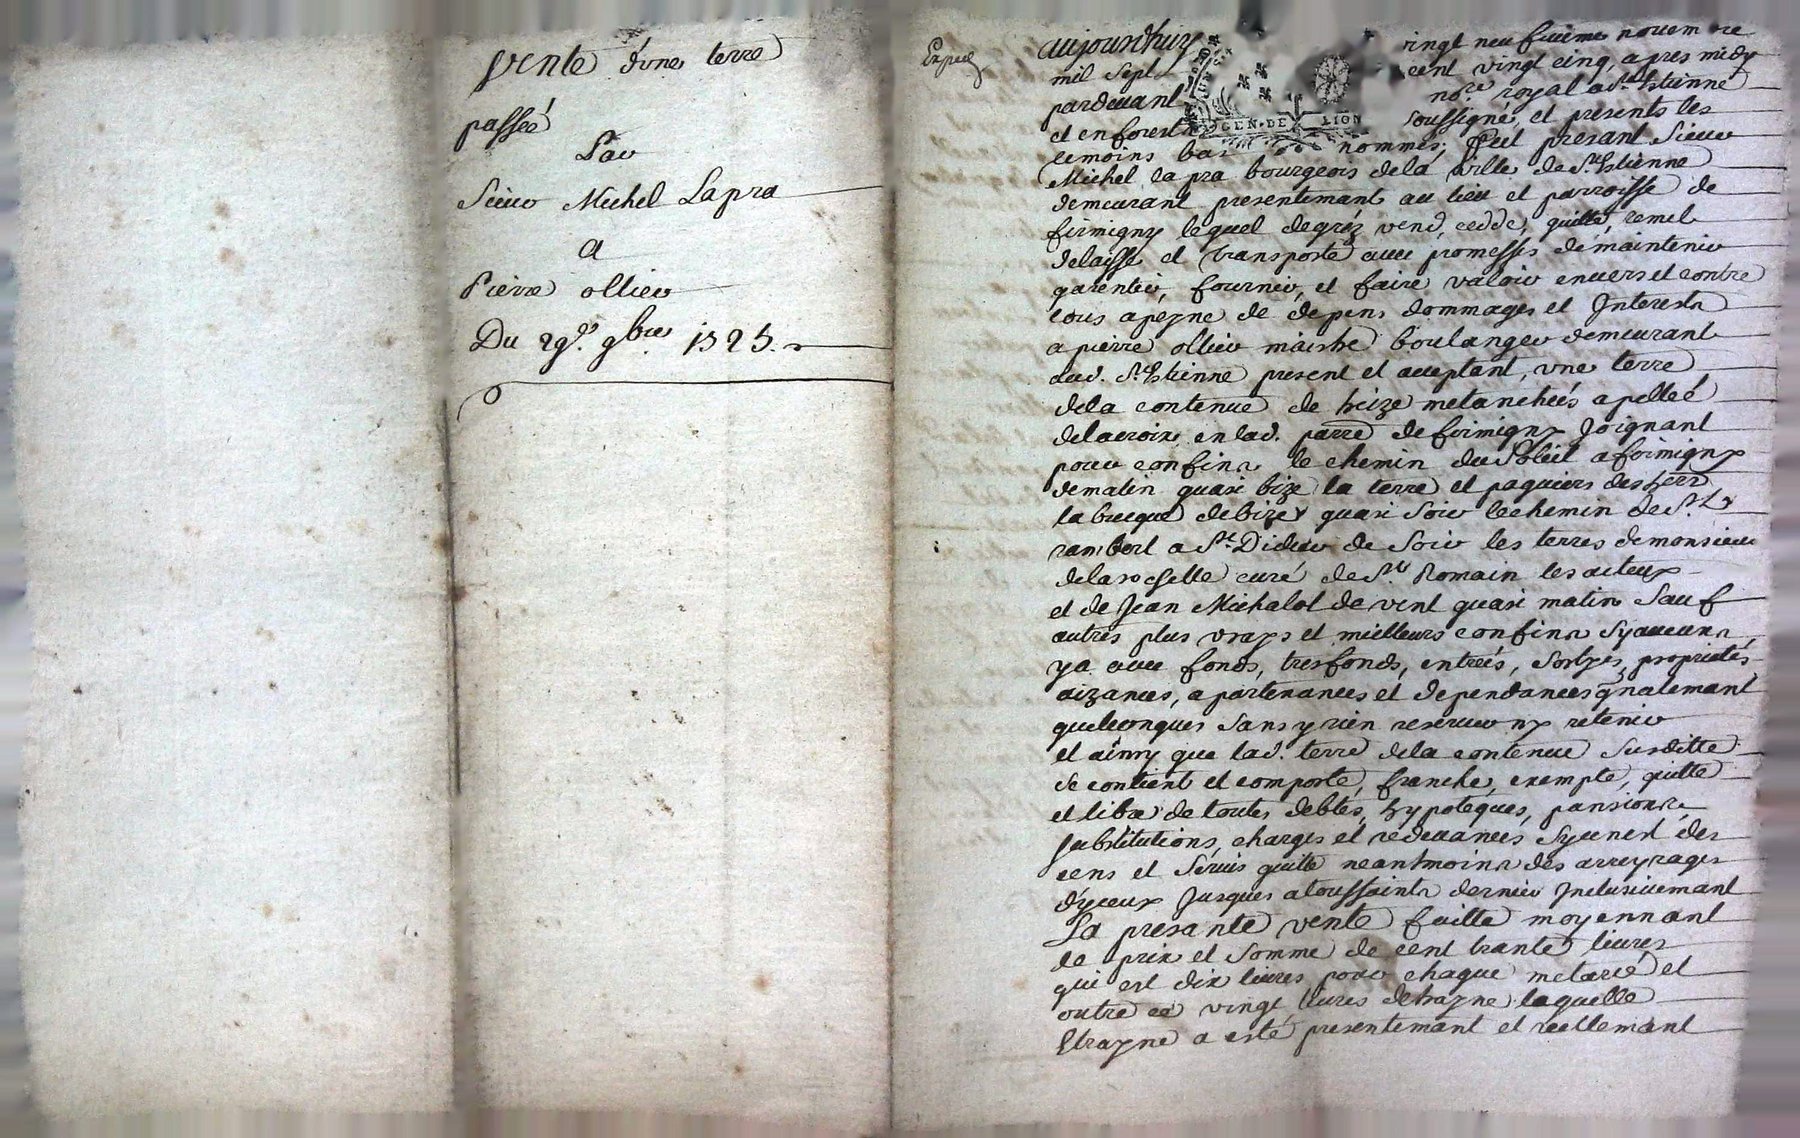 vente d'une terre
passée
Par
Sieur Michel Lapra
A
Pierre ollier
Du 29e. 9bre 1725.
Exped
aujourdhuy vingt neufuieme novembre
mil sept cent vingt cinq, apres midy
pardevant nore. royal a St. Estienne
et en forest soussigné, et presents les
temoins bas nommés; fut presant Sieur
Michel la pra bourgeois de la ville de St. Estienne
demeurant presentemant au lieu et parroisse de
firminy lequel de gréz vend, cedde, quitte, remet
delaisse et transporte avec promesses de maintenir
garentir, fournir, et faire valoir envers et contre
tous a peyne de depens dommages et Interests
a pierre ollier maistre boulanger demeurant
aud. St. Estienne present et aceptant, une terre
de la contenue de treize metancheés apelleé
delacroix en lad. parre de firmigny Joignant
pour confins le chemin du Soleil a firmigny
de matin quasi bize la terre et paquiers des hers
la brueque de bize quasi Soir le chemin de St.
rambert a St. Didier de Soir les terres de monsieur
dela rochette curé de St. Romain les atteux
et de Jean Michalot de vent quasi matin Sauf
autres plus vrays et meilleurs confins Sy aucuns
ya avec fonds, tresfonds, entreés, Sortyes, proprietés
aizances, apartenances et dependances gnalemant
quelconques Sans y rien reserver ny retenir
et ainsy que lad. terre dela contenue Susditte
Se contient et comporte, franche, exempte, quitte
et libre de toutes debtes, hypoteques, pansions,
Substitutions, charges et redevances Sy ce nest des
cens et Servis quitte neantmoins des arreyrages
d'yceux Jusques a toussaints dernier Inclusivemant
La presante vente faitte moyennant
le prix et Somme de cent trante livres
qui est dix livres pour chaque metancheé et
outre ce vingt livres detrayne laquelle
Etrayne a esté presentemant et reellemant
GEN·DE LION